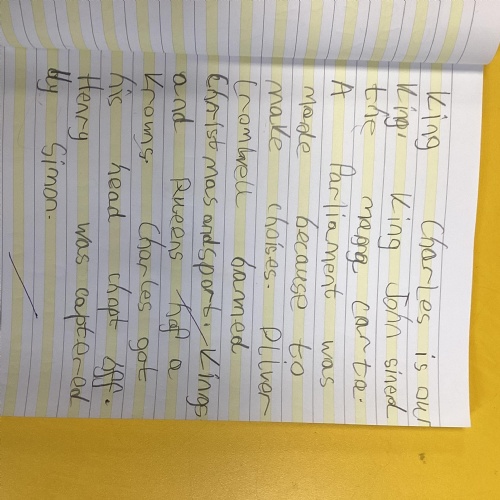 King Charles is our
King, King John sined
the magga carta.
A Parliament was
made because to
make choises. Oliver
Cromwell banned
Christmas and sport. Kings
and Queens a
Krowns. Charles got
his head chopt off.
Henry was captered
by Simon.